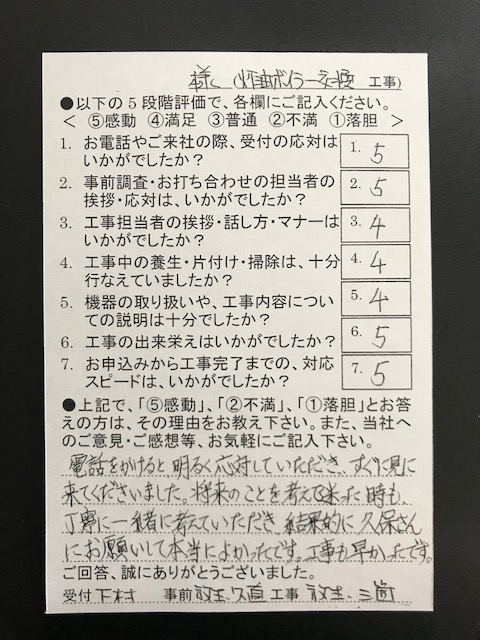 様 (灯油ボイラー交換 工事)
●以下の5段階評価で、各欄にご記入ください。
＜ ⑤感動 ④満足 ③普通 ②不満 ①落胆 ＞
1. お電話やご来社の際、受付の応対は
いかがでしたか？
1. 5
2. 事前調査・お打ち合わせの担当者の
挨拶・応対は、いかがでしたか？
2. 5
3. 工事担当者の挨拶・話し方・マナーは
いかがでしたか？
3. 4
4. 工事中の養生・片付け・掃除は、十分
行なえていましたか？
4. 4
5. 機器の取り扱いや、工事内容につい
ての説明は十分でしたか？
5. 4
6. 工事の出来栄えはいかがでしたか？
6. 5
7. お申込みから工事完了までの、対応
スピードは、いかがでしたか？
7. 5
●上記で、「⑤感動」、「②不満」、「①落胆」とお答
えの方は、その理由をお教え下さい。また、当社へ
のご意見・ご感想等、お気軽にご記入下さい。
電話をかけると、明るく応対していただき、すぐに見に
来てくださいました。将来のことを考えて迷った時も、
丁寧に一緒に考えていただき、結果的に久保さん
にお願いして本当によかったです。工事も早かったです。
ご回答、誠にありがとうございました。
受付 下村 事前 工事